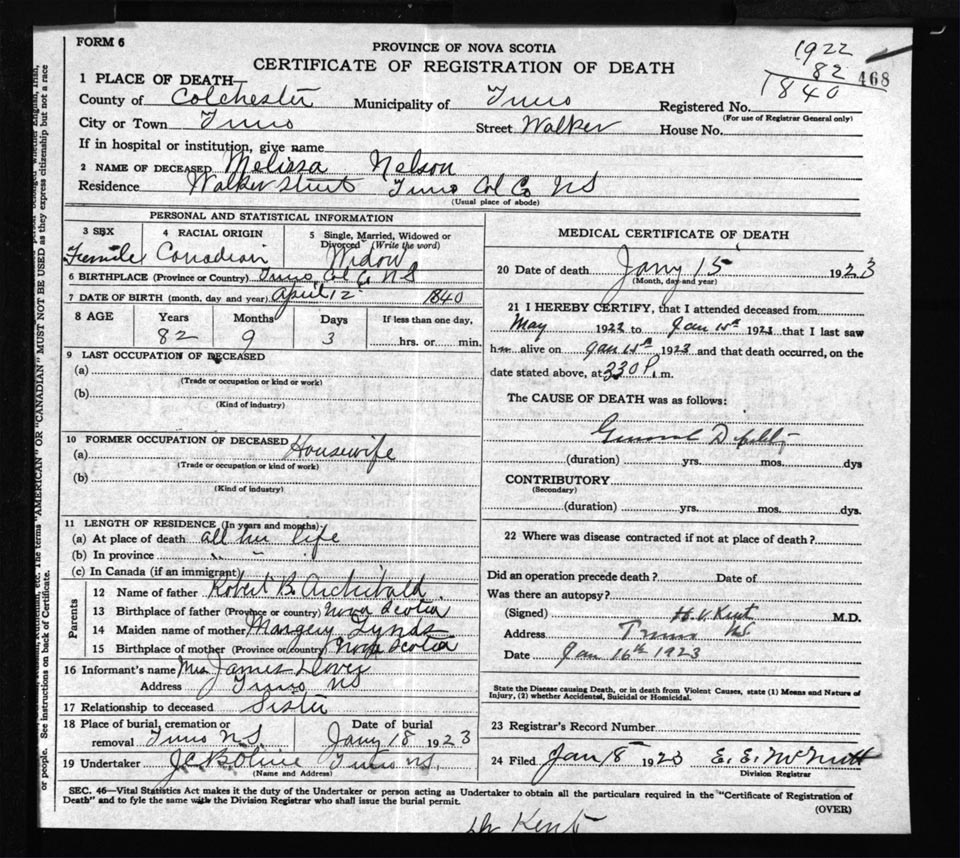 FORM 6
PROVINCE OF NOVA SCOTIA
CERTIFICATE OF REGISTRATION OF DEATH
1922
82
1840
468
1 PLACE OF DEATH—
County of Colchester Municipality of Truro Registered No.
(For use of Registrar General only)
City or Town Truro Street Walker House No.
If in hospital or institution, give name
2 NAME OF DECEASED Melissa Nelson
Residence Walker Street Truro Col Co NS
(Usual place of abode)
PERSONAL AND STATISTICAL INFORMATION
3 SEX
Female
4 RACIAL ORIGIN
Canadian
5 Single, Married, Widowed or Divorced (Write the word)
Widow
6 BIRTHPLACE (Province or Country) Truro Col Co NS
7 DATE OF BIRTH (month, day and year) April 12 1840
8 AGE Years Months Days If less than one day,
82 9 3 hrs. or min.
9 LAST OCCUPATION OF DECEASED
(a)
(Trade or occupation or kind or work)
(b)
(Kind of industry)
10 FORMER OCCUPATION OF DECEASED
(a) Housewife
(Trade or occupation or kind of work)
(b)
(Kind of industry)
11 LENGTH OF RESIDENCE (In years and months)
(a) At place of death all her life
(b) In province " " "
(c) In Canada (if an immigrant)
Parents
12 Name of father Robert B. Archibald
13 Birthplace of father (Province or country) Nova Scotia
14 Maiden name of mother Margery Lynds
15 Birthplace of mother (Province or country) Nova Scotia
16 Informant's name Mrs James
Address Truro NS
17 Relationship to deceased Sister
18 Place of burial, cremation or removal Truro NS
Date of burial
Jany 18 1923
19 Undertaker Truro NS.
(Name and Address)
MEDICAL CERTIFICATE OF DEATH
20 Date of death Jany 15 1923
(Month, day and year)
21 I HEREBY CERTIFY, that I attended deceased from
May 1922 to Jan 15th 1923 that I last saw
her alive on Jan 15th 1923 and that death occurred, on the
date stated above, at 330 P. m.
The CAUSE OF DEATH was as follows:
General Debility
(duration) yrs. mos. dys
CONTRIBUTORY
(Secondary)
(duration) yrs. mos. dys.
22 Where was disease contracted if not at place of death?
Did an operation precede death? Date of
Was there an autopsy?
(Signed) H. V. Kent M.D.
Address Truro NS
Date Jan 16th 1923
State the Disease causing Death, or in death from Violent Causes, state (1) Means and Nature of
Injury, (2) whether Accidental, Suicidal or Homicidal.
23 Registrar's Record Number
24 Filed Jan 18 1923 E. E. McNutt
Division Registrar
SEC. 46—Vital Statistics Act makes it the duty of the Undertaker or person acting as Undertaker to obtain all the particulars required in the "Certificate of Registration of
Death" and to fyle the same with the Division Registrar who shall issue the burial permit.
(OVER)
Dr Kent
etc. The terms "AMERICAN" OR "CANADIAN" MUST NOT BE USED as they express citizenship but not a race
or people. See instructions on back of Certificate.